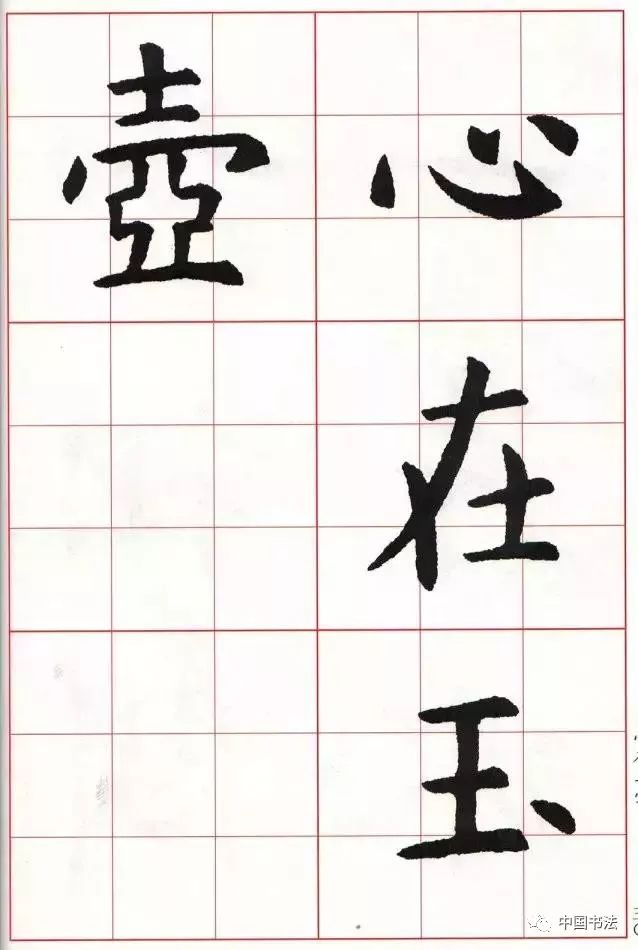 心在玉
壺
中国书法